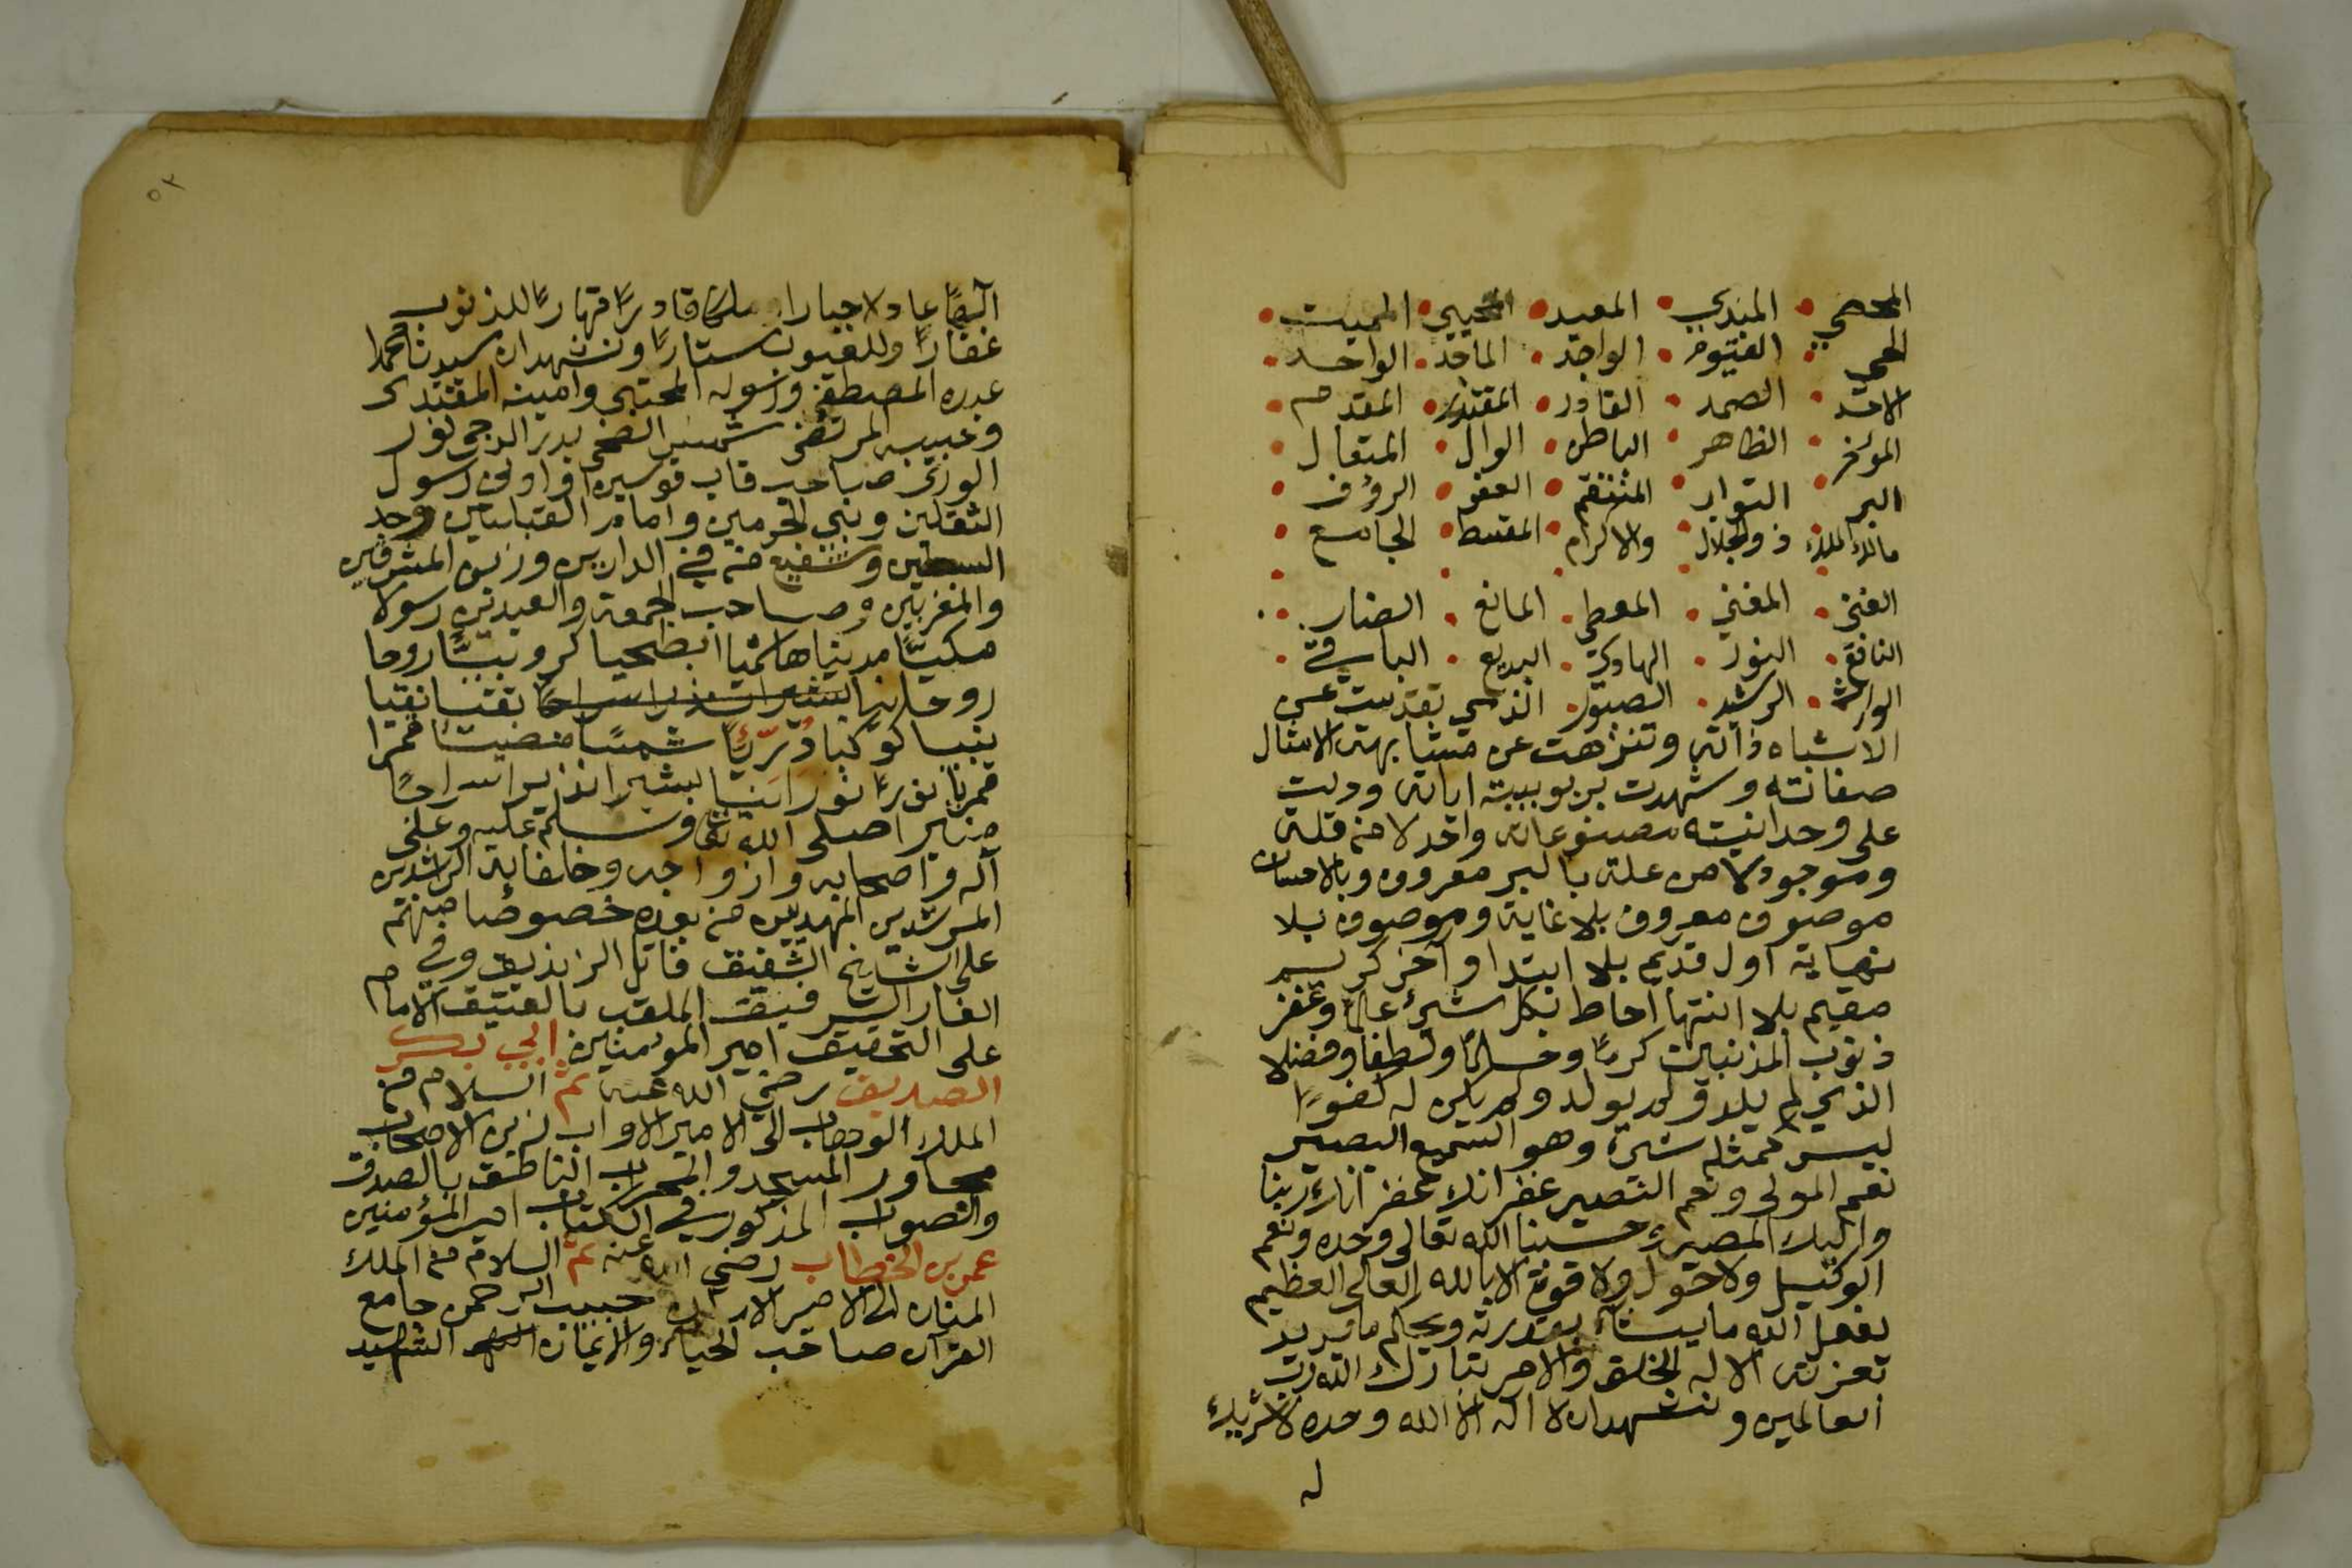 المحصي المبدي المعيد المحيي المميت
الحي القيوم الواجد الماجد الواحد
الاحد الصمد القادر المقتدر المقدم
الموخر الظاهر الباطن الوال المتعال
البر التواب المنتقم العفو الرؤف
مالك الملك ذو الجلال والاكرام المقسط الجامع
الغني المغني المعطي المانع الضار
النافع النور الهادي البديع الباقي
الوارث الرشيد الصبور الذي تقدست عن
الاشباه ذاته وتنزهت عن مشابهة الامثال
صفاته وشهدت بربوبيته اياته ودلت
على وحدانيته مصنوعاته واحد لا من قلة
وموجود لا من علة بالبر معروف وبالاحسان
موصوف معروف بلا غاية وموصوف بلا
نهاية اول قديم بلا ابتدا وآخر كريم
مقيم بلا انتها احاط بكل شيء علما وغفر
ذنوب المذنبين كرما وحلما ولطفا وفضلا
الذي لم يلد ولم يولد ولم يكن له كفوا
ليس كمثله شيء وهو السميع البصير
نعم المولى ونعم النصير غفرانك غفرانك ربنا
واليك المصير وحسبنا الله تعالى وحده ونعم
الوكيل ولا حول ولا قوة الا بالله العلي العظيم
يفعل الله ما يشاء بقدرته ويحكم ما يريد
بعزته الا له الخلق والامر تبارك الله رب
العالمين ونشهد ان لا اله الا الله وحده لا شريك
له
٥٢
الها عادلا جبارا ملكا قادرا قهارا للذنوب
غفارا وللعيوب ستارا ونشهد ان سيدنا محمدا
عبده المصطفى ورسوله المجتبى وامينه المقتدى
وحبيبه المرتضى شمس الضحى بدر الدجى نور
الورى صاحب قاب قوسين او ادنى رسول
الثقلين ونبي الحرمين وامام القبلتين وجد
السبطين وشفيع من في الدارين وزين المشرقين
والمغربين وصاحب الجمعة والعيدين رسولا
مكيا مدنيا هاشميا ابطحيا كروبيا روحا
روحانيا بشيرا نذيرا سراجا تقيا نقيا
نبيا كوكبا دريا شمسا مضيئا قمرا
قمريا نورا نورانيا بشيرا نذيرا سراجا
منيرا صلى الله تعالى وسلم عليه وعلى
آله واصحابه وازواجه وخلفايه الراشدين
المرشدين المهديين من بعده خصوصا منهم
على الشايخ الشفيق قاتل الزنديق وفي
الغار الرفيق الملقب بالعتيق الامام
على التحقيق امير المومنين ابي بكر
الصديق رضي الله عنه ثم السلام من
الملك الوهاب الى الامير الاواب زين الاصحاب
مجاور المسجد والمحراب الناطق بالصدق
والصواب المذكور في الكتاب امير المؤمنين
عمر بن الخطاب رضي الله عنه ثم السلام من الملك
المنان الى الامير الامان حبيب الرحمن جامع
القرآن صاحب الحياء والايمان الشهيد